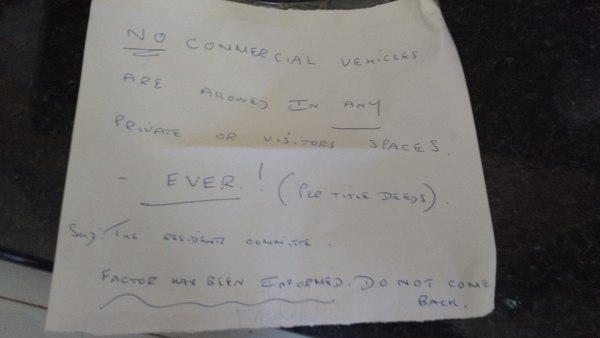 NO COMMERCIAL VEHICLES
ARE ALLOWED IN ANY
PRIVATE OR VISITORS SPACES.
- EVER! (PER TITLE DEEDS).
THE RESIDENT COMMITTE.
FACTOR HAS BEEN INFORMED. DO NOT COME
BACK.